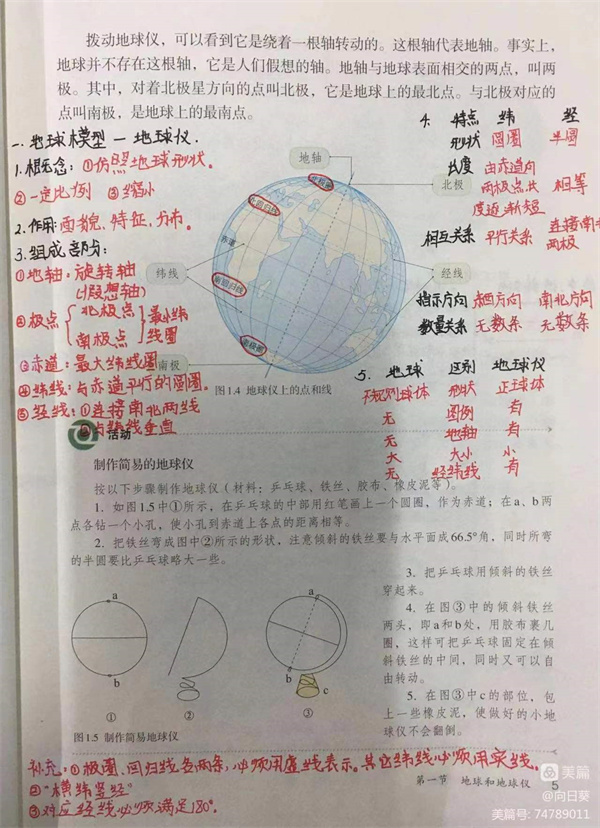 拨动地球仪，可以看到它是绕着一根轴转动的。这根轴代表地轴。事实上，
地球并不存在这根轴，它是人们假想的轴。地轴与地球表面相交的两点，叫两
极。其中，对着北极星方向的点叫北极，它是地球上的最北点。与北极对应的
点叫南极，是地球上的最南点。
一、地球模型—地球仪.
1.概念：①仿照地球形状。
②一定比例 ③缩小
2.作用:面貌、特征、分布。
3.组成部分：
①地轴：旋转轴
(假想轴)
②极点 北极点 南极点 最小纬线圈
③赤道：最大纬线圈
④纬线：与赤道平行的圆圈。
⑤经线：①连接南北两线
②与纬线垂直
地轴
北极
北极圈
北回归线
赤道
南回归线
南极圈
纬线
经线
南极
图1.4 地球仪上的点和线
4. 特点 纬 经
形状 圆圈 半圆
长度 由赤道向两极点长度逐渐短 相等
相互关系 平行关系 连接南两极
指示方向 东西方向 南北方向
数量关系 无数条 无数条
5. 地球 区别 地球仪
不规则球体 形状 正球体
无 图例 有
无 地轴 有
大 大小 小
无 经纬线 有
活动
制作简易的地球仪
按以下步骤制作地球仪（材料：乒乓球、铁丝、胶布、橡皮泥等）。
1. 如图1.5中①所示，在乒乓球的中部用红笔画上一个圆圈，作为赤道；在a、b两
点各钻一个小孔，使小孔到赤道上各点的距离相等。
2. 把铁丝弯成图中②所示的形状，注意倾斜的铁丝要与水平面成66.5°角，同时所弯
的半圆要比乒乓球略大一些。
3. 把乒乓球用倾斜的铁丝
穿起来。
4. 在图③中的倾斜铁丝
两头，即a和b处，用胶布裹几
圈，这样可把乒乓球固定在倾
斜铁丝的中间，同时又可以自
由转动。
5. 在图③中c的部位，包
上一些橡皮泥，使做好的小地
球仪不会翻倒。
a
b
①
②
a
b
c
③
图1.5 制作简易地球仪
补充：①极圈、回归线各两条，必须用虚线表示。其它纬线必须用实线。
②"横纬竖经"
③对应经线必须满足180°.
第一节 地球和地球仪 5
美篇
@向日葵
美篇号: 74789011